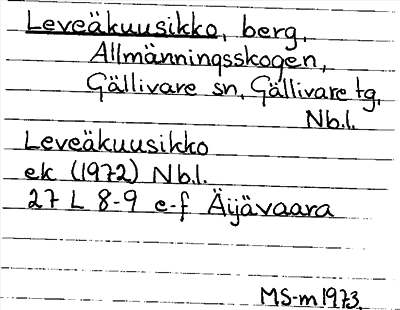 Leveäkuusikko, berg,
Allmänningsskogen,
Gällivare sn, Gällivare tg,
Nb.l.
Leveäkuusikko
ek (1972) Nb.l.
27 L 8-9 e-f Äijävaara
MS-m 1973.